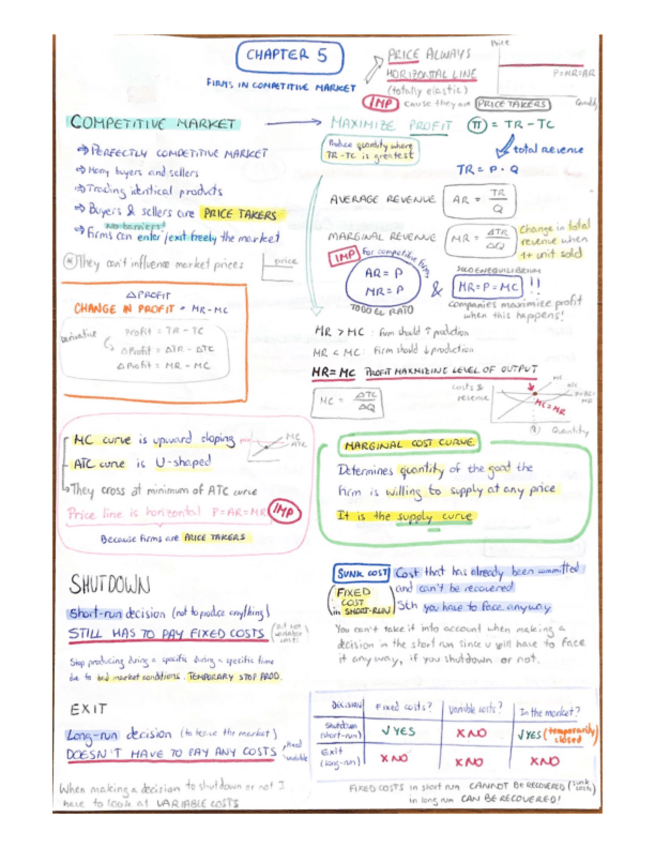 CHAPTER 5
FIRMS IN COMPETITIVE MARKET
PRICE ALWAYS
HORIZONTAL LINE
(totally elastic)
IMP cause they are PRICE TAKERS
Price
P=MR=AR
Quantity
COMPETITIVE MARKET
MAXIMIZE PROFIT π = TR - TC
Produce quantity where
TR-TC is greatest
total revenue
TR = P · Q
⇒ PERFECTLY COMPETITIVE MARKET
⇒ Many buyers and sellers
⇒ Trading identical products
⇒ Buyers & sellers are PRICE TAKERS
No barriers!
⇒ Firms can enter/exit freely the market
* They can't influence market prices
price
AVERAGE REVENUE AR = TR/Q
MARGINAL REVENUE MR = ΔTR/ΔQ
Change in total
revenue when
1+ unit sold
IMP for competitive firms
AR = P
MR = P
TODO EL RATO
&
SOLO EN EQUILIBRIUM
MR=P=MC !!
companies maximize profit
when this happens!
ΔPROFIT
CHANGE IN PROFIT = MR-MC
derivative
Profit = TR - TC
ΔProfit = ΔTR - ΔTC
ΔProfit = MR - MC
MR > MC : firm should ↑ production
MR < MC : firm should ↓ production
MR=MC PROFIT MAXIMIZING LEVEL OF OUTPUT
MC = ΔTC/ΔQ
costs &
revenue
MC
ATC
MC=MR
Quantity
MC curve is upward sloping
ATC curve is U-shaped
MC
ATC
They cross at minimum of ATC curve
Price line is horizontal P=AR=MR IMP
Because firms are PRICE TAKERS
MARGINAL COST CURVE
Determines quantity of the good the
firm is willing to supply at any price
It is the supply curve
SHUTDOWN
Short-run decision (not to produce anything)
STILL HAS TO PAY FIXED COSTS (but not variable costs)
Stop producing during a specific during a specific time
due to bad market conditions. TEMPORARY STOP PROD.
SUNK COST Cost that has already been committed
and can't be recovered
FIXED
COST
in SHORT-RUN
Sth you have to face anyway
You can't take it into account when making a
decision in the short run since u will have to face
it anyway, if you shutdown or not.
EXIT
Long-run decision (to leave the market)
DOESN'T HAVE TO PAY ANY COSTS, fixed
variable
When making a decision to shutdown or not I
have to look at VARIABLE COSTS
DECISION Fixed costs? Variable costs? In the market?
Shutdown
(short-run) √ YES X NO √ YES (temporarily closed)
Exit
(long-run) X NO X NO X NO
FIXED COSTS in short run CANNOT BE RECOVERED (sunk costs)
in long run CAN BE RECOVERED!